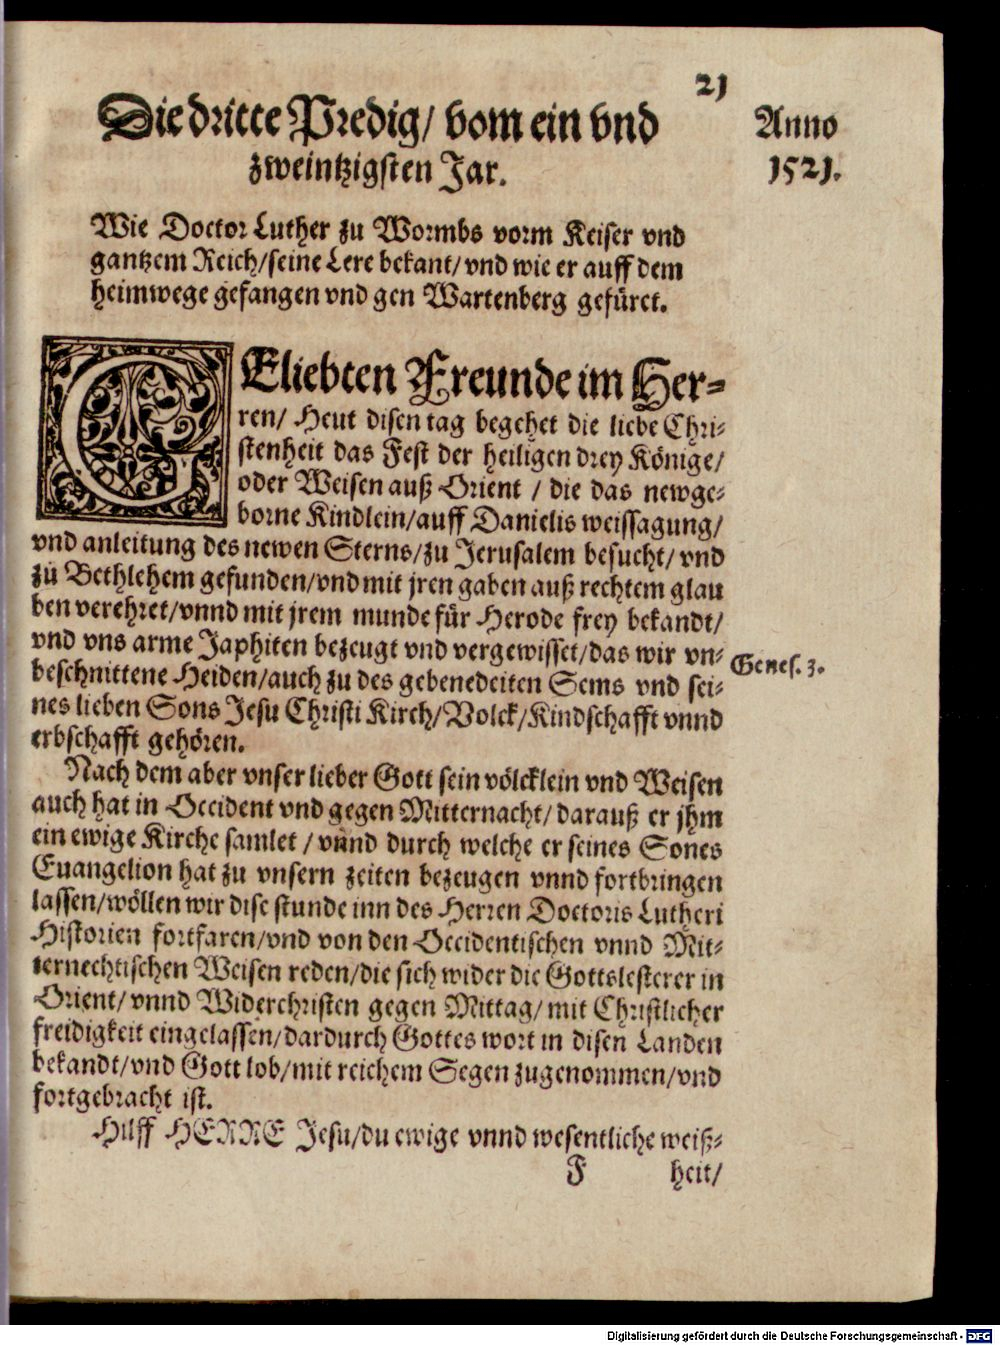 21
Die dritte Predig/ vom ein vnd
zweintzigsten Jar.
Anno
1521.
Wie Doctor Luther zu Wormbs vorm Keiser vnd
gantzem Reich/seine Lere bekant/vnd wie er auff dem
heimwege gefangen vnd gen Wartenberg gefüret.
GEliebten Freunde im Her-
ren/ Heut disen tag begehet die liebe Chri-
stenheit das Fest der heiligen drey Könige/
oder Weisen auß Orient / die das newge-
borne Kindlein/auff Danielis weissagung/
vnd anleitung des newen Sterns/zu Jerusalem besucht/ vnd
zu Bethlehem gefunden/vnd mit jren gaben auß rechtem glau
ben verehret/vnnd mit jrem munde für Herode frey bekandt/
vnd vns arme Japhiten bezeugt vnd vergewisset/das wir vn-
beschnittene Heiden/auch zu des gebenedeiten Sems vnd sei-
nes lieben Sons Jesu Christi Kirch/Volck/Kindschafft vnnd
erbschafft gehören.
Genes. 3.
Nach dem aber vnser lieber Gott sein völcklein vnd Weisen
auch hat in Occident vnd gegen Mitternacht/darauß er jhm
ein ewige Kirche samlet / vnnd durch welche er seines Sones
Euangelion hat zu vnsern zeiten bezeugen vnnd fortbringen
lassen/wöllen wir dise stunde inn des Herren Doctoris Lutheri
Historien fortfaren/vnd von den Occidentischen vnnd Mit-
ternechtischen Weisen reden/die sich wider die Gottslesterer in
Orient/ vnnd Widerchristen gegen Mittag/ mit Christlicher
freidigkeit eingelassen/dardurch Gottes wort in disen Landen
bekandt/vnd Gott lob/mit reichem Segen zugenommen/vnd
fortgebracht ist.
Hilff HERRE Jesu/du ewige vnnd wesentliche weiß-
F heit/
Digitalisierung gefördert durch die Deutsche Forschungsgemeinschaft - DFG